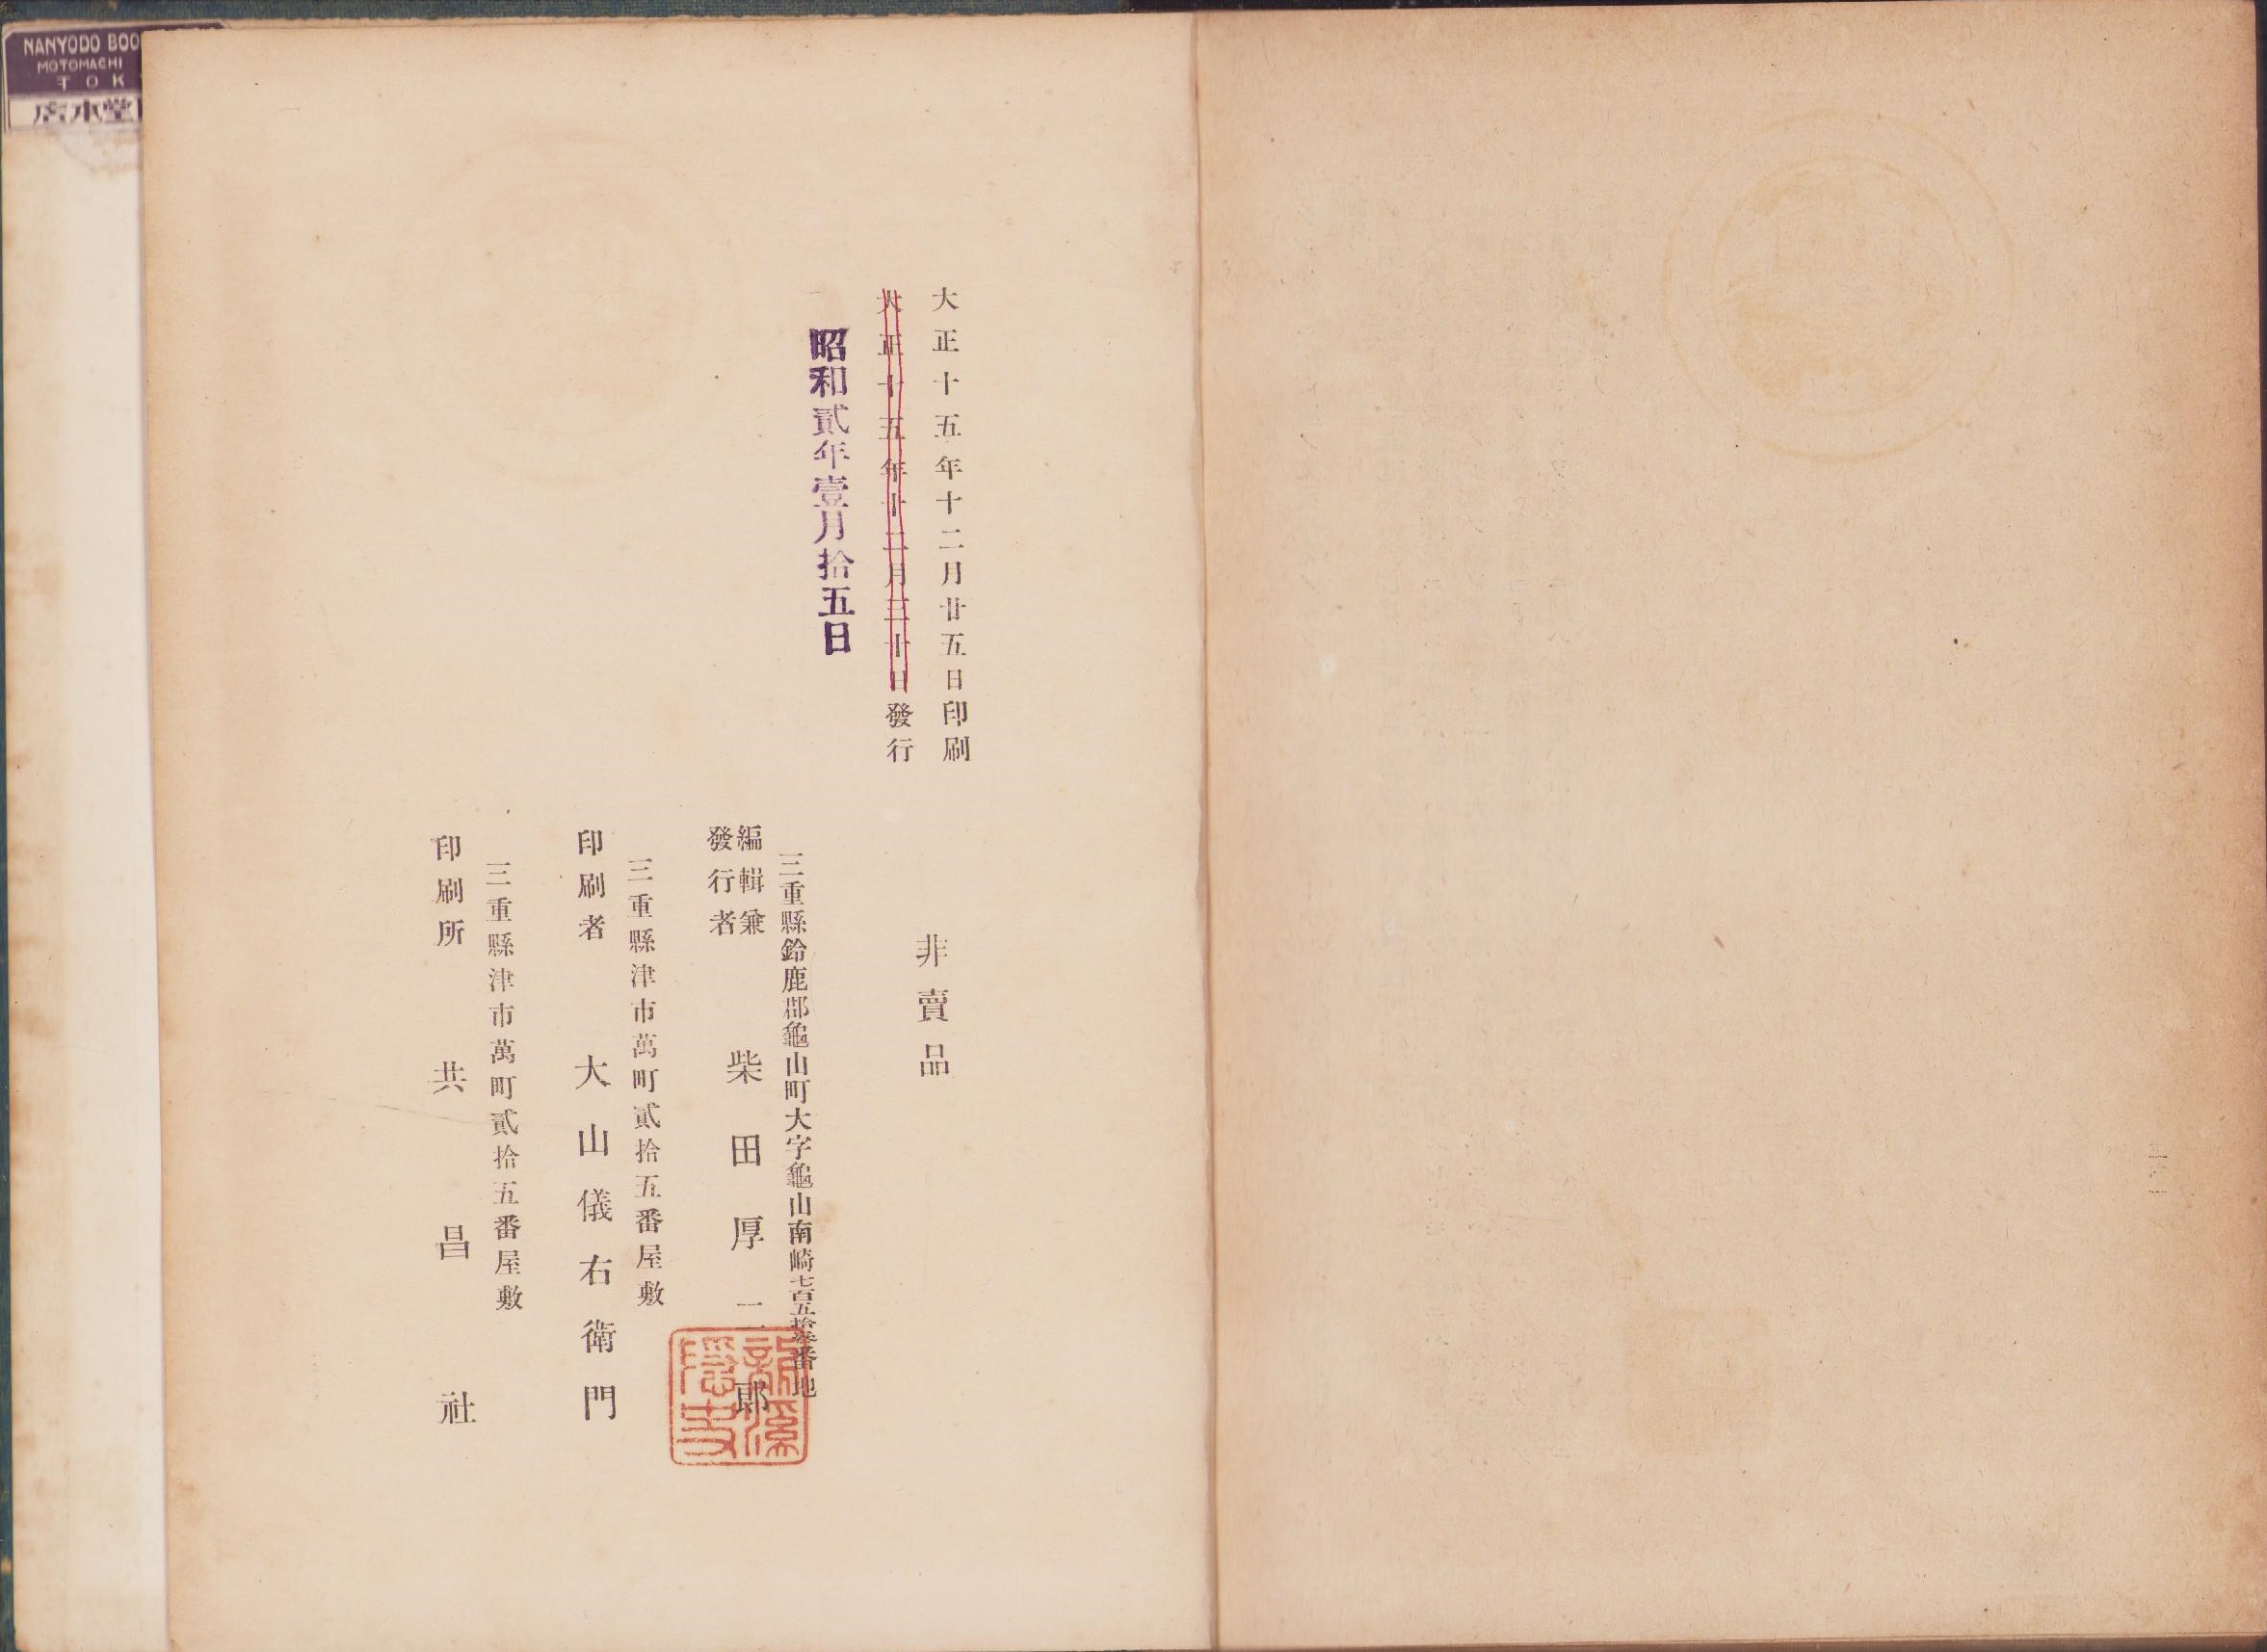 大正十五年十二月廿五日印刷
大正十五年十二月三十日發行
昭和貳年壹月拾五日
非賣品
三重縣鈴鹿郡龜山町大字龜山南崎七百五拾參番地
編輯兼
發行者
柴田厚二郎
三重縣津市萬町貳拾五番屋敷
印刷者 大山儀右衛門
三重縣津市萬町貳拾五番屋敷
印刷所 共昌社
NANYODO BOO
MOTOMACHI
TOK
店本堂